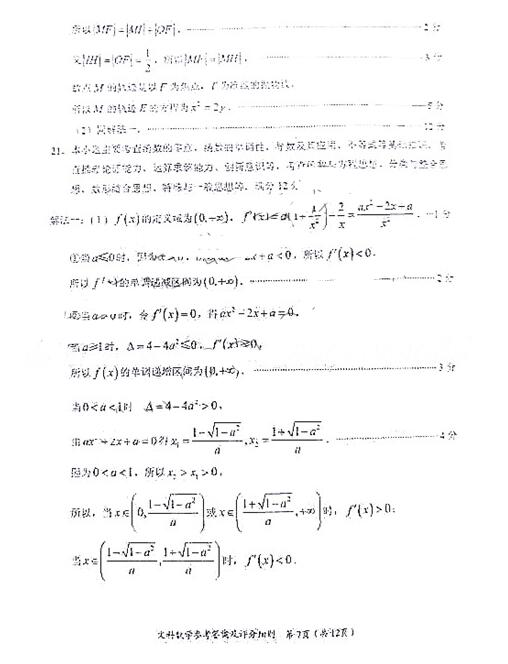 所以|MF|=|MI|=|OF|. 2分
又|IH|=|OF|=1/2, 所以|MF|=|MH|. 3分
故点M的轨迹是以F为焦点,
所以M的轨迹E的方程为x²=2y. 5分
(2)同解法一. 12分
21. 本小题主要考查函数的零点、函数的单调性、导数及其应用、不等式等基础知识, 考
查推理论证能力、运算求解能力、创新意识等, 考查函数与方程思想、分类与整合思
想、数形结合思想、特殊与一般思想等. 满分12分.
解法一: (1) f(x)的定义域为(0,+∞), f'(x)=a(1+1/x²)-2/x=(ax²-2x+a)/x². 1分
①当a≤0时, 因为 +a<0, 所以f'(x)<0.
所以f(x)的单调递减区间为(0,+∞). 2分
②当a>0时, 令f'(x)=0, 得ax²-2x+a=0.
当a≥1时, Δ=4-4a²≤0, f'(x)≥0,
所以f(x)的单调递增区间为(0,+∞). 3分
当0<a<1时 Δ=4-4a²>0,
由ax²-2x+a=0得x₁=(1-√(1-a²))/a, x₂=(1+√(1-a²))/a. 4分
因为0<a<1, 所以x₂>x₁>0,
所以, 当x∈(0,(1-√(1-a²))/a)或x∈((1+√(1-a²))/a,+∞)时, f'(x)>0;
当x∈((1-√(1-a²))/a,(1+√(1-a²))/a)时, f'(x)<0.
文科数学参考答案及评分细则 第7页(共12页)